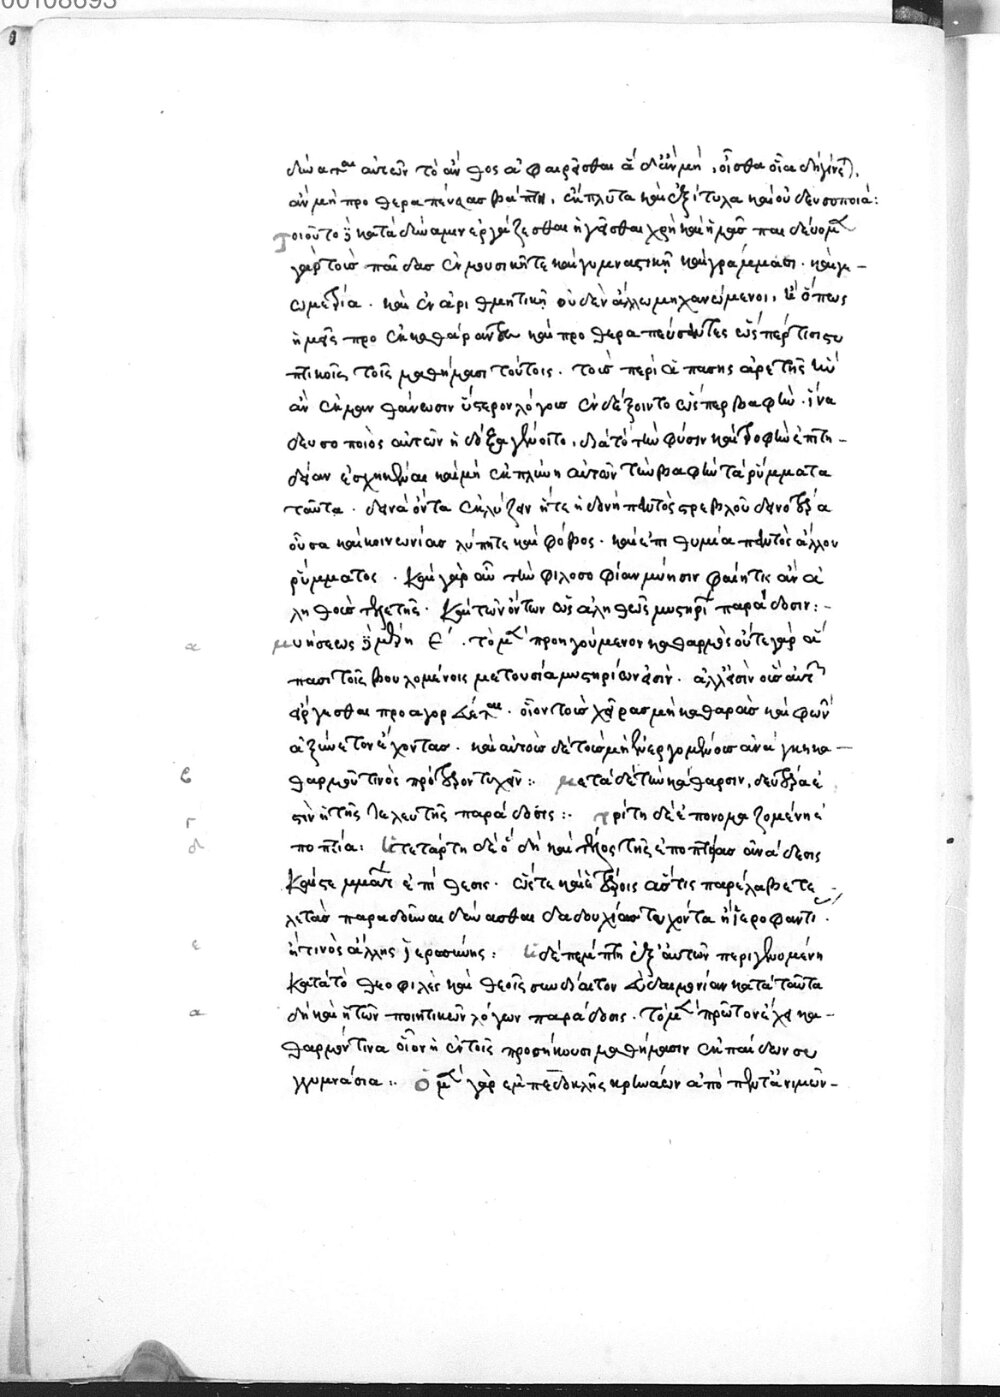 δύναται αὐτῶν τὸ ἄνθος ἀφαιρεῖσθαι ἃ δ' ἂν μὴ, οἶσθα οἷα δὴ γίνεται,
ἂν μὴ προθεραπεύσας βάπτῃ, ἔκπλυτα καὶ ἐξίτηλα καὶ οὐ δευσοποιά:
τοιοῦτον κατὰ δύναμιν ἐργάζεσθαι ἡγεῖσθαι χρὴ καὶ ἡμᾶς παιδεύομεν
γὰρ τοὺς παῖδας ἐν μουσικῇ τε καὶ γυμναστικῇ καὶ γράμμασι. καὶ γε-
ωμετρία. καὶ ἐν ἀριθμητικῇ οὐδὲν ἄλλο μηχανώμενοι, ἢ ὅπως
ἡμεῖς προεκκαθάραντες καὶ προθεραπεύσαντες ὥσπερ τισι στυ
πτικοῖς τοῖς μαθήμασι τούτοις. τοὺς περὶ ἁπάσης ἀρετῆς ἣν
ἂν ἐκμανθάνωσιν ὕστερον λόγους ἐνδέξοιντο ὥσπερ βαφὴν. ἵνα
δευσοποιὸς αὐτῶν ἡ δόξα γένοιτο, διὰ τὸ τὴν φύσιν καὶ τροφὴν ἐπιτη-
δείαν ἐσχηκέναι καὶ μὴ ἐκπλύνῃ αὐτῶν τὴν βαφὴν τὰ ῥύμματα
ταῦτα. δεινὰ ὄντα ἐκκλύζειν ἥτε ἡδονὴ παντὸς στρεβλοῦ δεινοτέρα
οὖσα καὶ κοινωνίας λύπη τε καὶ φόβος. καὶ ἐπιθυμία παντὸς ἄλλου
ῥύμματος. καὶ γὰρ αὖ τὴν φιλοσοφίαν μύησιν φαίη τις ἂν ἀ
ληθοῦς τελετῆς. καὶ τῶν ὄντων ὡς ἀληθῶς μυστηρίων παράδοσιν:-
μυήσεως δὲ μέρη ε'. τὸ μὲν προηγούμενον καθαρμὸς οὔτε γὰρ ἅ
πασι τοῖς βουλομένοις μετουσία μυστηρίων ἐστὶν. ἀλλ' εἰσὶν οὓς αὐτῶν
εἴργεσθαι προαγορεύεται. οἷον τοὺς χεῖρας μὴ καθαρὰς καὶ φωνὴν
ἀξύνετον ἔχοντας. καὶ αὐτοὺς δὲ τοὺς μὴ εἰργομένους ἀνάγκη κα-
θαρμοῦ τινὸς πρότερον τυχεῖν: μετὰ δὲ τὴν κάθαρσιν, δευτέρα ἐ
στὶν ἡ τῆς τελετῆς παράδοσις: τρίτη δὲ ἐπονομαζομένη ἐ
ποπτεία: τετάρτη δὲ ὃ δὴ καὶ τέλος τῆς ἐποπτείας ἀνάδεσις
καὶ στεμμάτων ἐπίθεσις. ὥστε καὶ ἑτέροις ἅς τις παρέλαβε τε
λετὰς παραδοῦναι δύνασθαι δᾳδουχίας τυχόντα ἢ ἱεροφαντίας.
ἤ τινος ἄλλης ἱερωσύνης: ἡ δὲ πέμπτη ἐξ αὐτῶν περιγενομένη
κατὰ τὸ θεοφιλὲς καὶ θεοῖς συνδίαιτον εὐδαιμονίαν κατὰ ταῦτα
δὴ καὶ ἡ τῶν ποιητικῶν λόγων παράδοσις. τὸ μὲν πρῶτον ἔχει κα-
θαρμόν τινα οἷον ἡ ἐν τοῖς προσήκουσι μαθήμασιν ἐκ παίδων συ
γγυμνασία: ὁ μὲν γὰρ ἐμπεδοκλῆς κρηνάων ἀπὸ πέντ' ἀνιμῶν-
α
β
γ
δ
ε
α